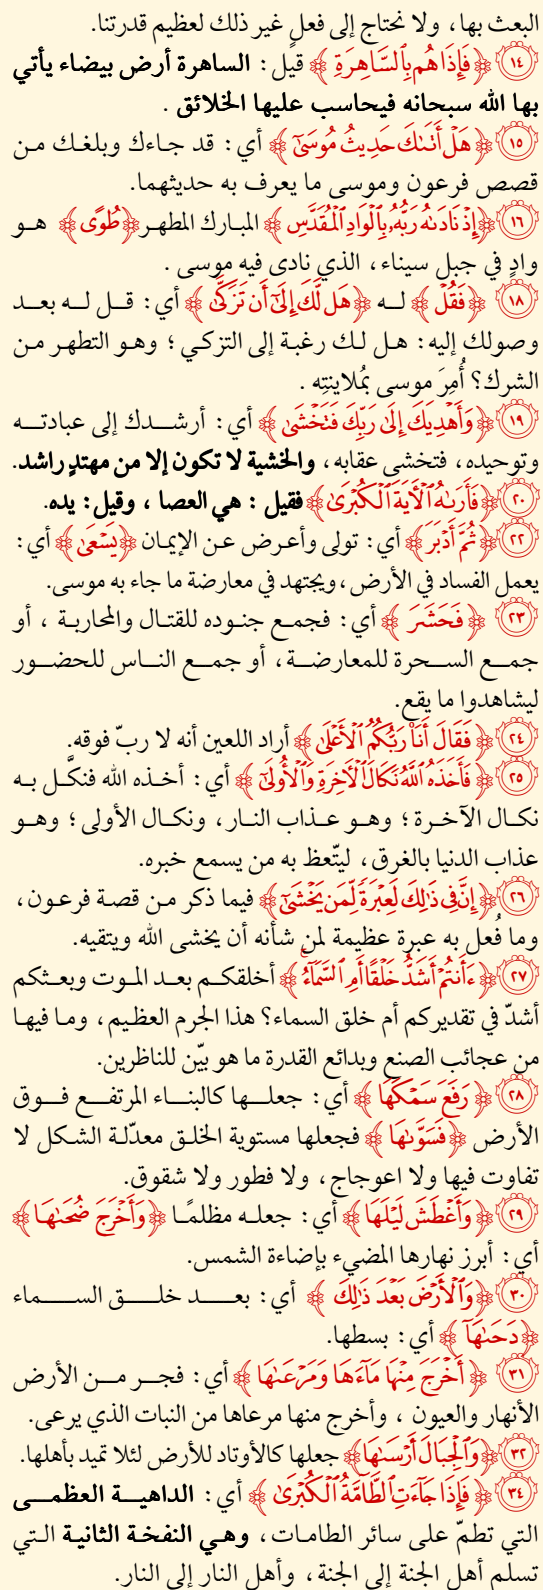 البعث بها، ولا نحتاج إلى فعلٍ غير ذلك لعظيم قدرتنا.
١٤ ﴿فَإِذَا هُم بِٱلسَّاهِرَةِ﴾ قيل: الساهرة أرض بيضاء يأتي
بها الله سبحانه فيحاسب عليها الخلائق.
١٥ ﴿هَلْ أَتَىٰكَ حَدِيثُ مُوسَىٰٓ﴾ أي: قد جاءك وبلغك من
قصص فرعون وموسى ما يعرف به حديثهما.
١٦ ﴿إِذْ نَادَىٰهُ رَبُّهُۥ بِٱلْوَادِ ٱلْمُقَدَّسِ﴾ المبارك المطهر ﴿طُوًى﴾ هو
وادٍ في جبل سيناء، الذي نادى فيه موسى.
١٨ ﴿فَقُلْ﴾ له ﴿هَل لَّكَ إِلَىٰٓ أَن تَزَكَّىٰ﴾ أي: قل له بعد
وصولك إليه: هل لك رغبة إلى التزكي؛ وهو التطهر من
الشرك؟ أُمِرَ موسى بمُلاينتِه.
١٩ ﴿وَأَهْدِيَكَ إِلَىٰ رَبِّكَ فَتَخْشَىٰ﴾ أي: أرشدك إلى عبادته
وتوحيده، فتخشى عقابه، والخشية لا تكون إلا من مهتدٍ راشد.
٢٠ ﴿فَأَرَىٰهُ ٱلْـَٔايَةَ ٱلْكُبْرَىٰ﴾ فقيل: هي العصا، وقيل: يده.
٢٢ ﴿ثُمَّ أَدْبَرَ﴾ أي: تولى وأعرض عن الإيمان ﴿يَسْعَىٰ﴾ أي:
يعمل الفساد في الأرض، ويجتهد في معارضة ما جاء به موسى.
٢٣ ﴿فَحَشَرَ﴾ أي: فجمع جنوده للقتال والمحاربة، أو
جمع السحرة للمعارضة، أو جمع الناس للحضور
ليشاهدوا ما يقع.
٢٤ ﴿فَقَالَ أَنَا۠ رَبُّكُمُ ٱلْأَعْلَىٰ﴾ أراد اللعين أنه لا ربّ فوقه.
٢٥ ﴿فَأَخَذَهُ ٱللَّهُ نَكَالَ ٱلْـَٔاخِرَةِ وَٱلْأُولَىٰٓ﴾ أي: أخذه الله فنكَّل به
نكال الآخرة؛ وهو عذاب النار، ونكال الأولى؛ وهو
عذاب الدنيا بالغرق، ليتّعظ به من يسمع خبره.
٢٦ ﴿إِنَّ فِى ذَٰلِكَ لَعِبْرَةً لِّمَن يَخْشَىٰٓ﴾ فيما ذكر من قصة فرعون،
وما فُعل به عبرة عظيمة لمن شأنه أن يخشى الله ويتقيه.
٢٧ ﴿ءَأَنتُمْ أَشَدُّ خَلْقًا أَمِ ٱلسَّمَآءُ﴾ أخلقكم بعد الموت وبعثكم
أشدّ في تقديركم أم خلق السماء؟ هذا الجرم العظيم، وما فيها
من عجائب الصنع وبدائع القدرة ما هو بيّن للناظرين.
٢٨ ﴿رَفَعَ سَمْكَهَا﴾ أي: جعلها كالبناء المرتفع فوق
الأرض ﴿فَسَوَّىٰهَا﴾ فجعلها مستوية الخلق معدّلة الشكل لا
تفاوت فيها ولا اعوجاج، ولا فطور ولا شقوق.
٢٩ ﴿وَأَغْطَشَ لَيْلَهَا﴾ أي: جعله مظلمًا ﴿وَأَخْرَجَ ضُحَىٰهَا﴾
أي: أبرز نهارها المضيء بإضاءة الشمس.
٣٠ ﴿وَٱلْأَرْضَ بَعْدَ ذَٰلِكَ﴾ أي: بعد خلق السماء
﴿دَحَىٰهَآ﴾ أي: بسطها.
٣١ ﴿أَخْرَجَ مِنْهَا مَآءَهَا وَمَرْعَىٰهَا﴾ أي: فجر من الأرض
الأنهار والعيون، وأخرج منها مرعاها من النبات الذي يرعى.
٣٢ ﴿وَٱلْجِبَالَ أَرْسَىٰهَا﴾ جعلها كالأوتاد للأرض لئلا تميد بأهلها.
٣٤ ﴿فَإِذَا جَآءَتِ ٱلطَّآمَّةُ ٱلْكُبْرَىٰ﴾ أي: الداهية العظمى
التي تطمّ على سائر الطامات، وهي النفخة الثانية التي
تسلم أهل الجنة إلى الجنة، وأهل النار إلى النار.